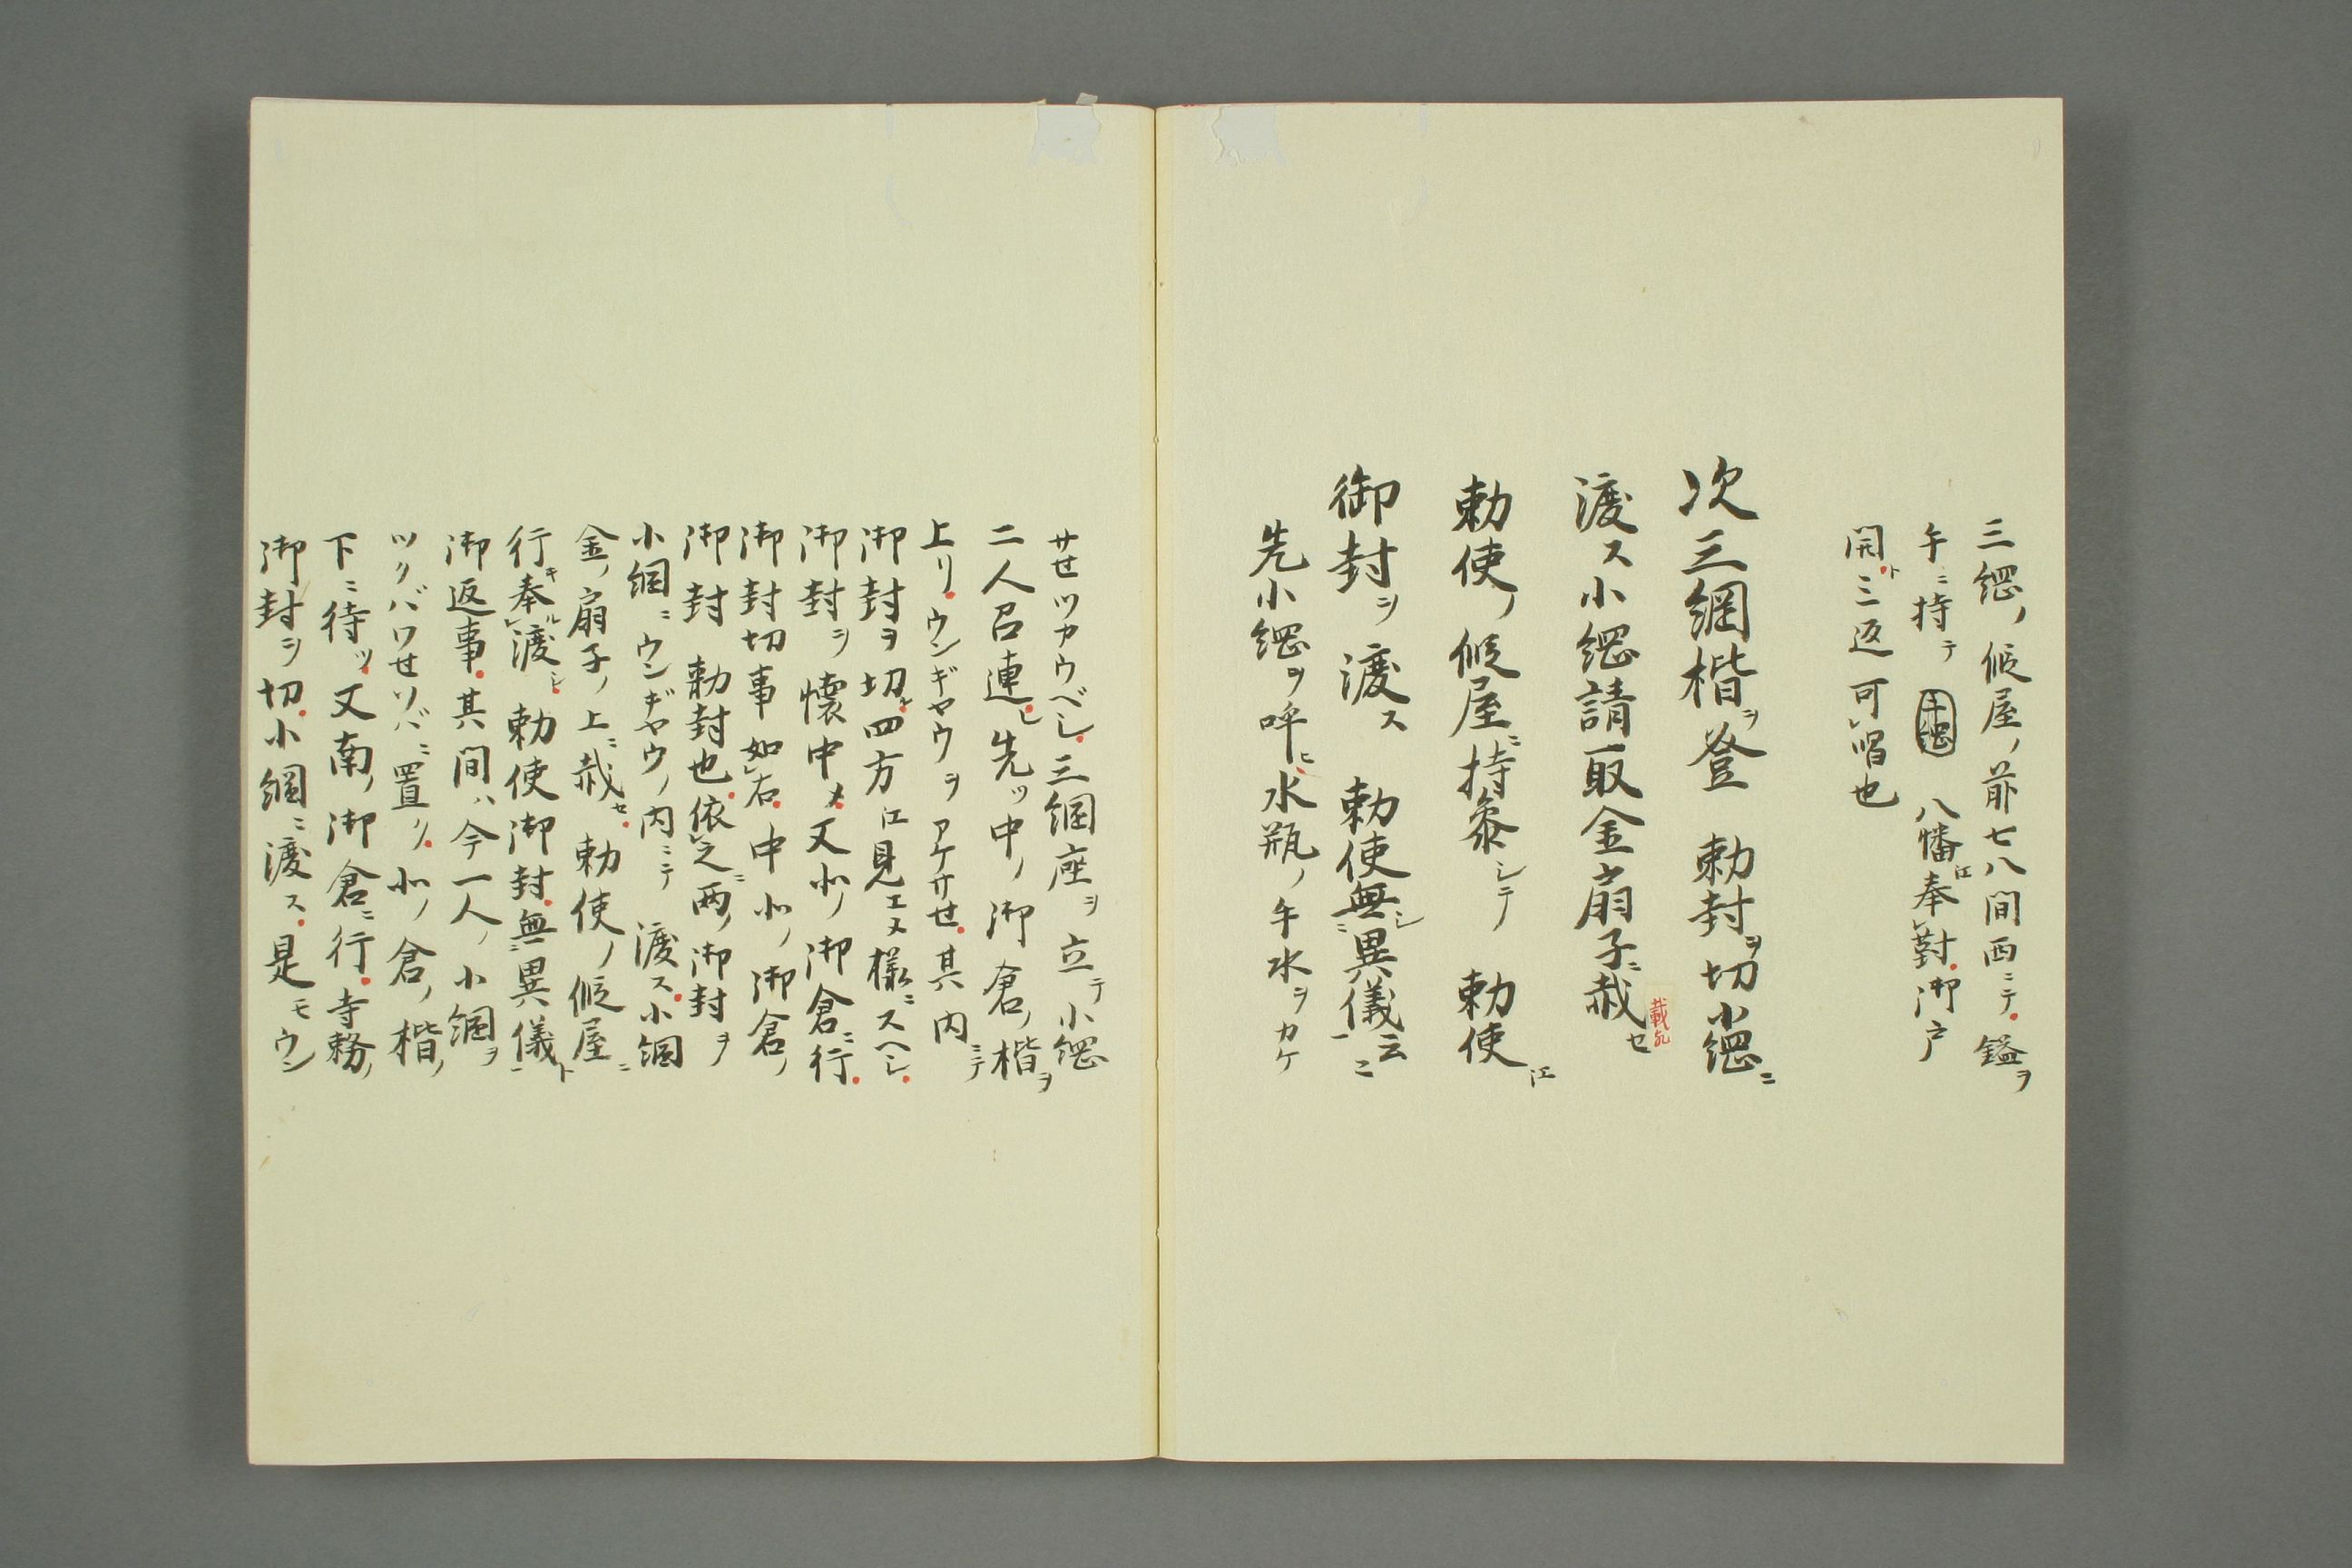 三綱ノ假屋ノ前七八間西ニテ鎰ヲ
手ニ持テ 八幡江奉對御戸
開ト三返可唱也
次三綱楷ヲ登 勅封ヲ切小綱ニ
渡ス小綱請取金扇子ニ裁セ
勅使ノ假屋ニ持參シテ 勅使江
御封ヲ渡ス 勅使無シ異儀云ニ
先小綱ヲ呼ヒ水瓶ノ手水ヲカケ
サセツカウベシ三綱座ヲ立テ小綱
二人召連レ先ツ中ノ御倉ノ楷ヲ
上リウンギヤウヲアケサせ其内ニテ
御封ヲ切ル四方江見エヌ樣ニスヘシ
御封ヲ懷中メ又北ノ御倉ニ行
御封切事如右中北ノ御倉ノ
御封 勅封也依之ニ兩ノ御封ヲ
小綱ニウンギヤウノ内ニテ 渡ス小綱
金ノ扇子ノ上ニ裁セ 勅使ノ假屋ニ
行キ奉ル渡シ 勅使御封無ニ異儀一ト
御返事其間ハ今一人ノ小綱ヲ
ツクバワせソバニ置ク北ノ倉ノ楷ノ
下ニ待ツ又南ノ御倉ニ行寺務ノ
御封ヲ切小綱ニ渡ス是モウン